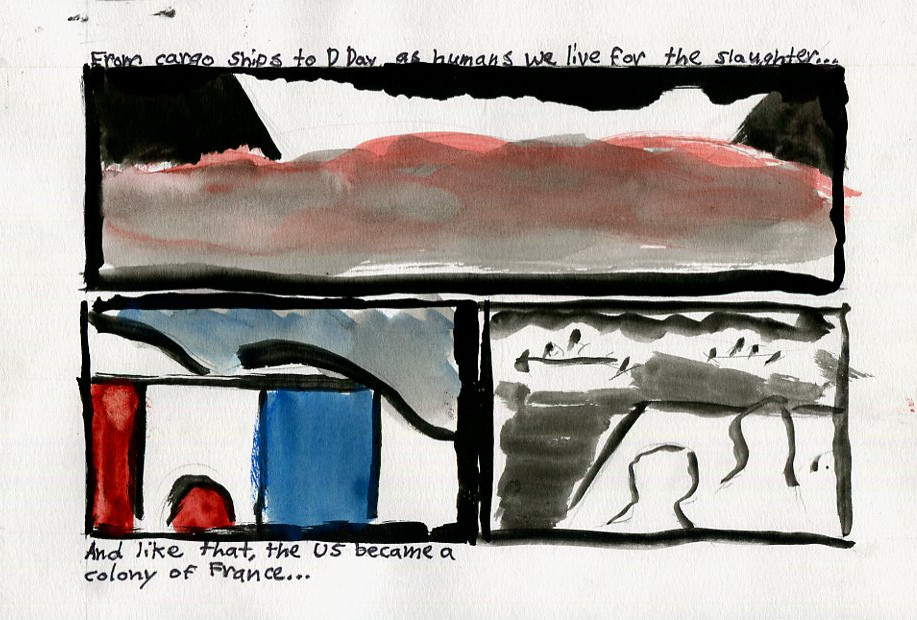 From cargo ships to D Day, as humans we live for the slaughter...
And like that, the US became a
colony of France...